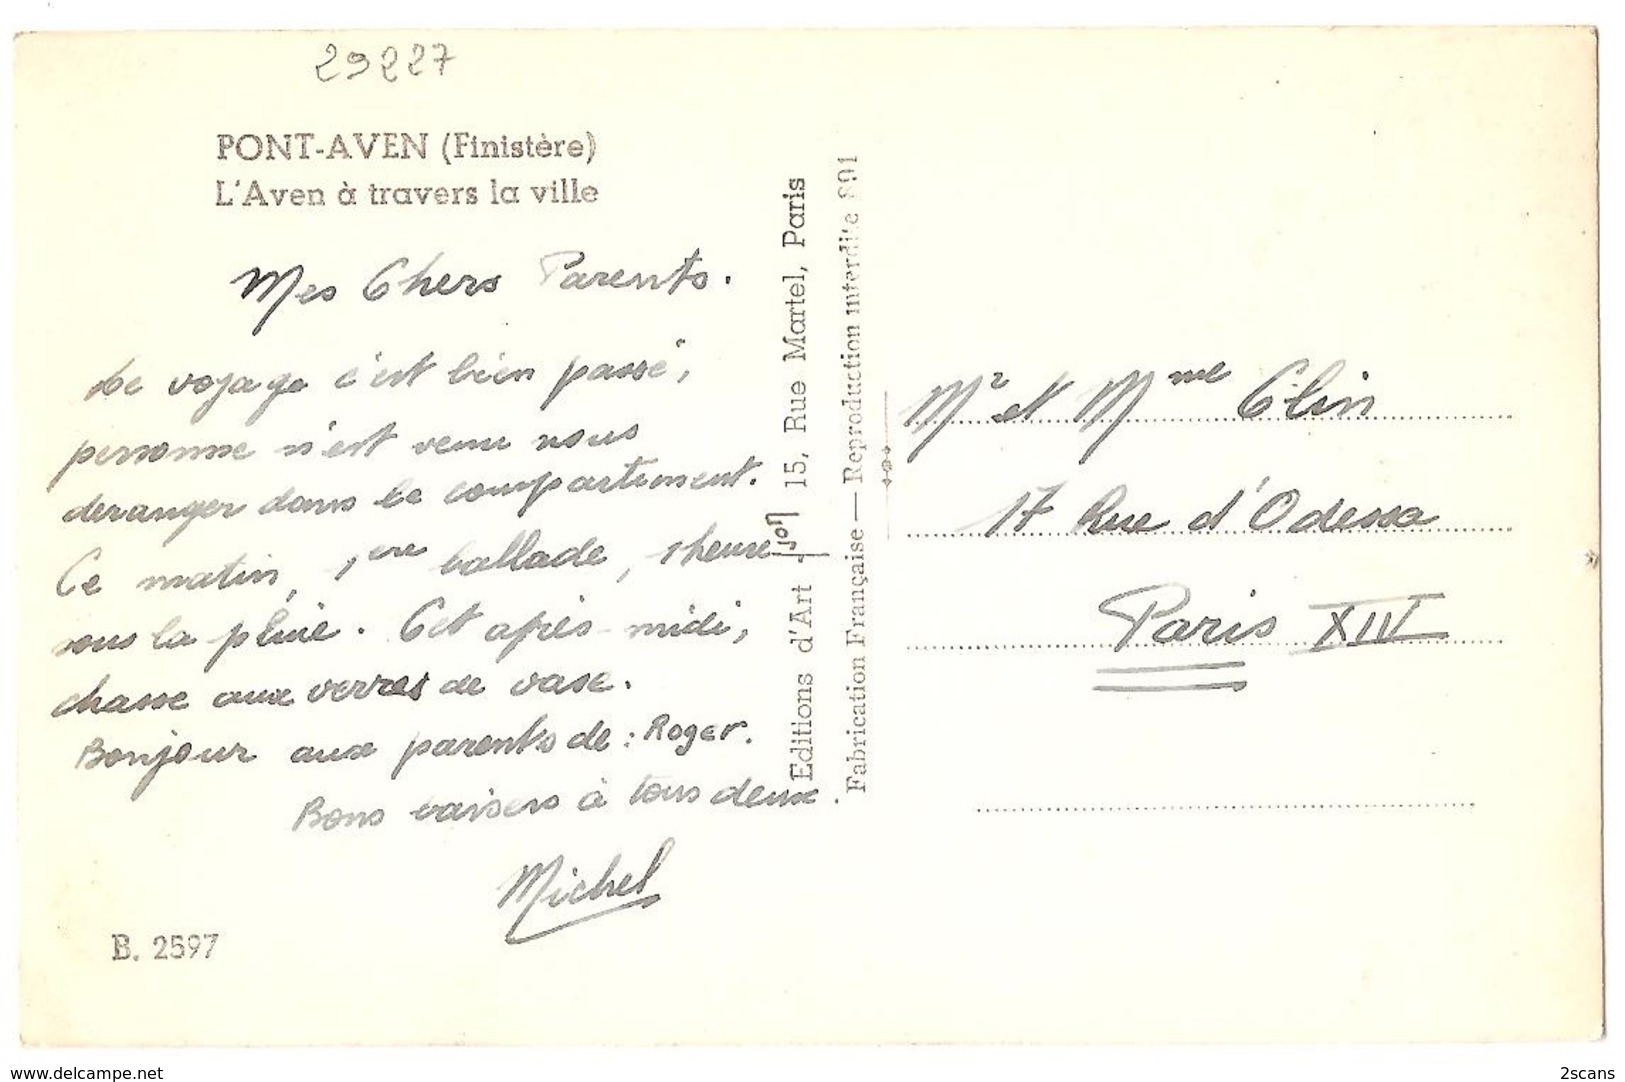 29227
PONT-AVEN (Finistère)
L'Aven à travers la ville
Mes Chers Parents.
Le voyage c'est bien passé,
personne n'est venu nous
deranger dans le compartiment.
Ce matin, 1ere ballade, 1 heure
sous la pluie. Cet après-midi,
chasse aux verres de vase.
Bonjour aux parents de : Roger.
Bons baisers à tous deux.
Michel
B. 2597
Editions d'Art 15, Rue Martel, Paris
Fabrication Française — Reproduction interdite 891
Mr et Mme Clin
17 Rue d'Odessa
Paris XIV
delcampe.net
2scans